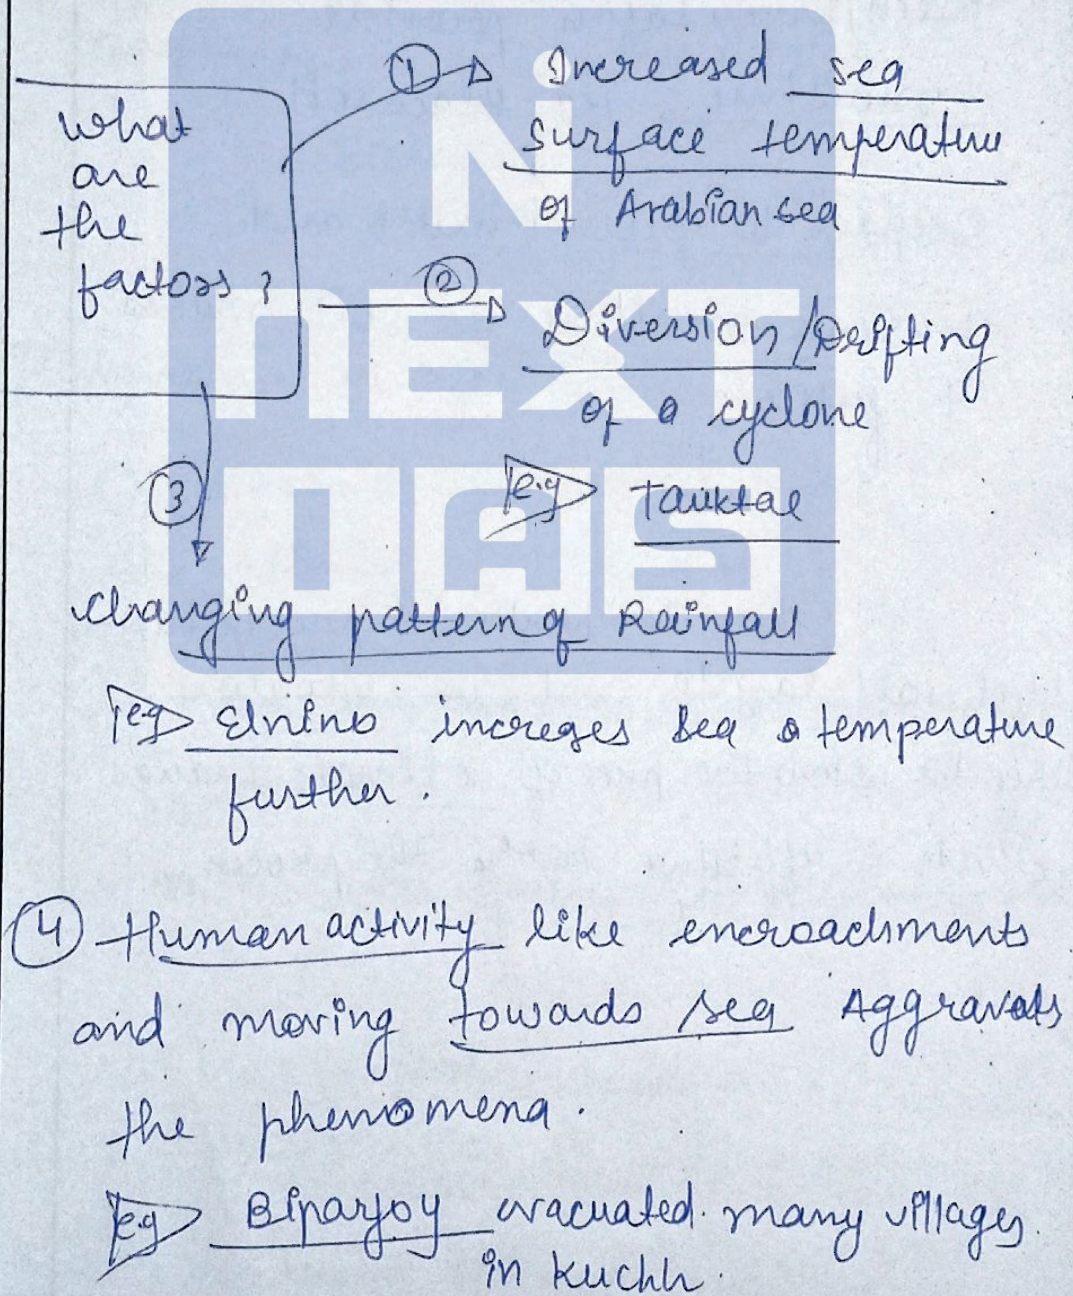 What
are
the
factors ?
① Increased sea
surface temperature
of Arabian sea
② Diversion/Drifting
of a cyclone
e.g Tauktae
③
changing pattern of Rainfall
eg Elnino increges sea temperature
further.
④ Human activity like encroachments
and moving towards sea Aggravats
the phenomena.
eg Biparjoy evacuated many villages
in Kuchh.
NEXT
IAS